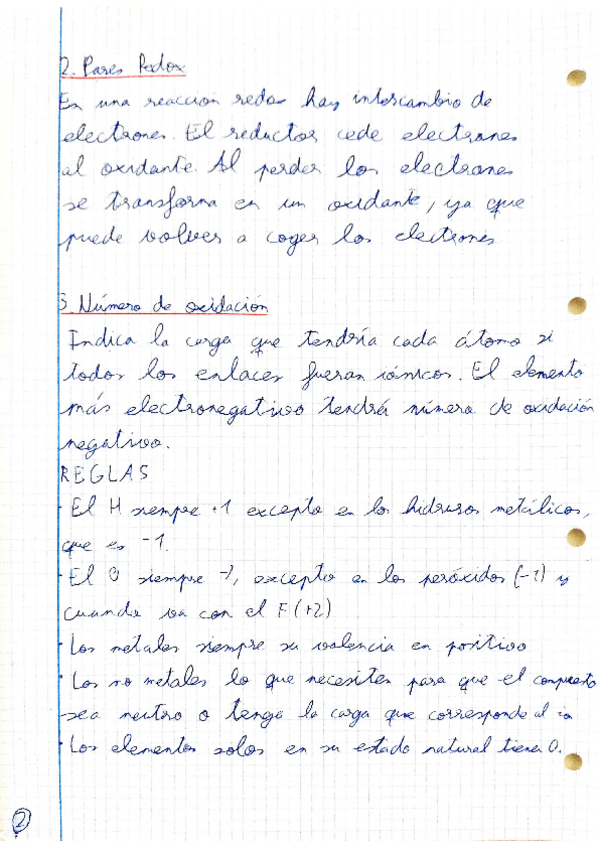 2. Pares Redox
En una reacción redox hay intercambio de
electrones. El reductor cede electrones
al oxidante. Al perder los electrones
se transforma en un oxidante, ya que
puede volver a coger los electrones
3. Número de oxidación
Indica la carga que tendría cada átomo si
todos los enlaces fueran iónicos. El elemento
más electronegativo tendrá número de oxidación
negativo.
REGLAS
· El H siempre +1 excepto en los hidruros metálicos,
que es -1.
· El O siempre -2, excepto en los peróxidos (-1) y
cuando va con el F (+2)
· Los metales siempre su valencia en positivo
· Los no metales lo que necesiten para que el compuesto
sea neutro o tenga la carga que corresponde al ion
· Los elementos solos en su estado natural tienen 0.
2